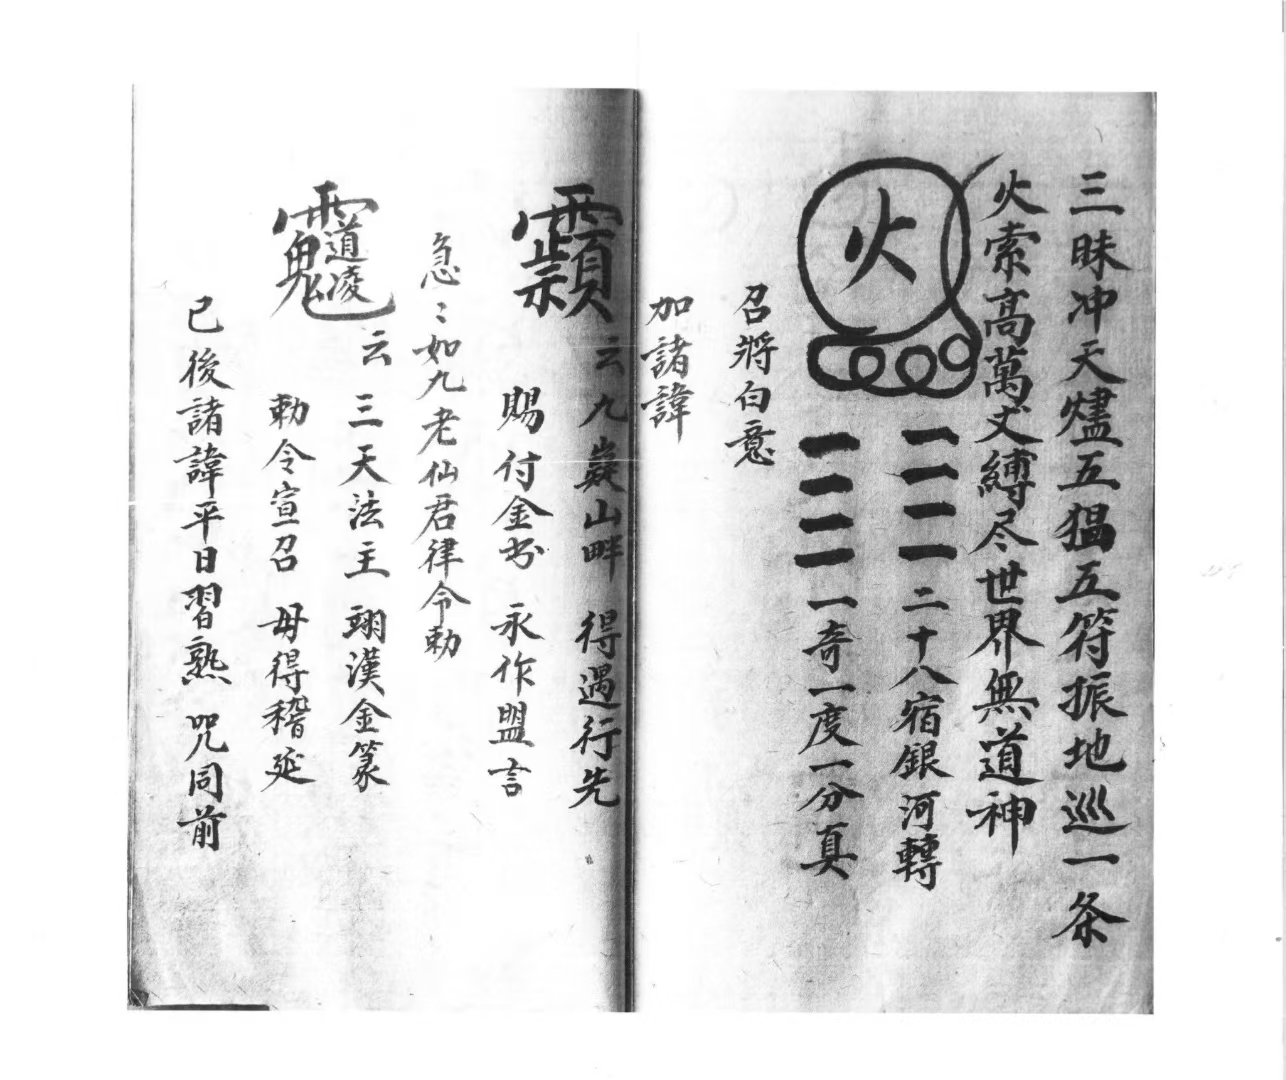 三昧冲天燼五猖五符振地巡一条
火索高萬丈縛尽世界無道神
火
二十八宿銀河轉
一奇一度一分真
召將白意
加諸諱
云九嶷山畔 得遇行先
賜付金书 永作盟言
急〻如九老仙君律令勅
云三天法主 翊漢金篆
勅令宣召 毋得稽延
已後諸諱平日習熟 咒同前